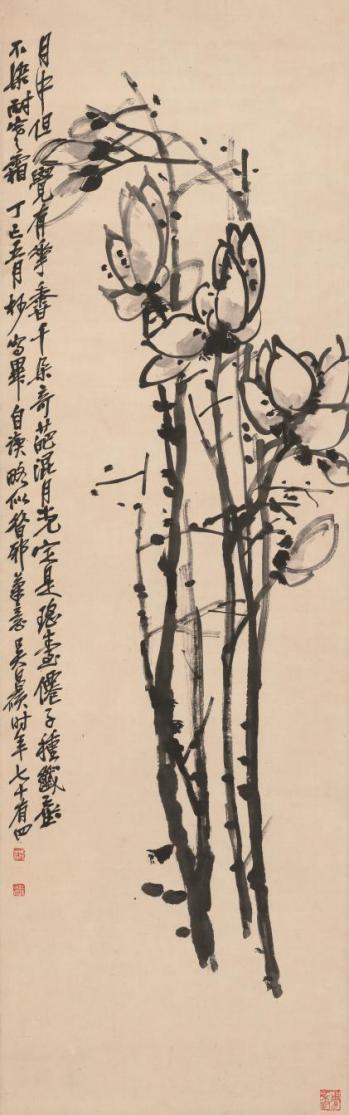 月中但覺有華香千朵奇葩混月光定是瑤臺僊子種纖塵
不染耐寒霜 丁巳五月杪寫畢自讀略似聱邪筆意吳昌碩時年七十有四